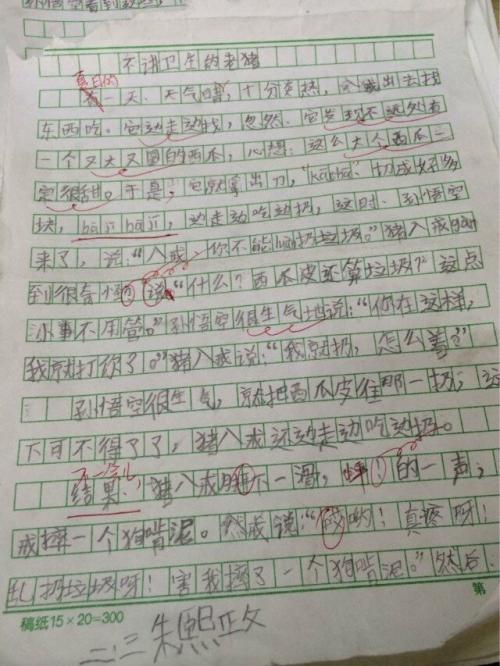 不讲卫生的老猪
夏日的
有一天，天气晴，十分炎热，八戒出去找
东西吃。它边走边找，忽然，它发现不远处有
一个又大又圆的西瓜，心想：这么大个西瓜一
定很甜。于是，它就拿出刀，"kacha"，切成好多
块，bā jī bā jī，边走边吃边扔，这时，孙悟空
来了，说："八戒，你不能乱扔垃圾。"猪八戒
到很奇怪，说"什么？西瓜皮还算垃圾？这点
小事不用管。"孙悟空很生气地说："你在这样，
我就打你了。"猪八戒说："我就扔，怎么着？"
孙悟空很生气，就把西瓜皮往那一扔，这
下可不得了了，猪八戒还边走边吃边扔。
不一会儿
结果，猪八戒脚下一滑，的一声，
戒摔一个狗啃泥。然后说："哎哟！真疼呀！
乱扔垃圾呀！害我摔了一个狗啃泥。"然后
第
稿纸15×20=300
二三朱熙政